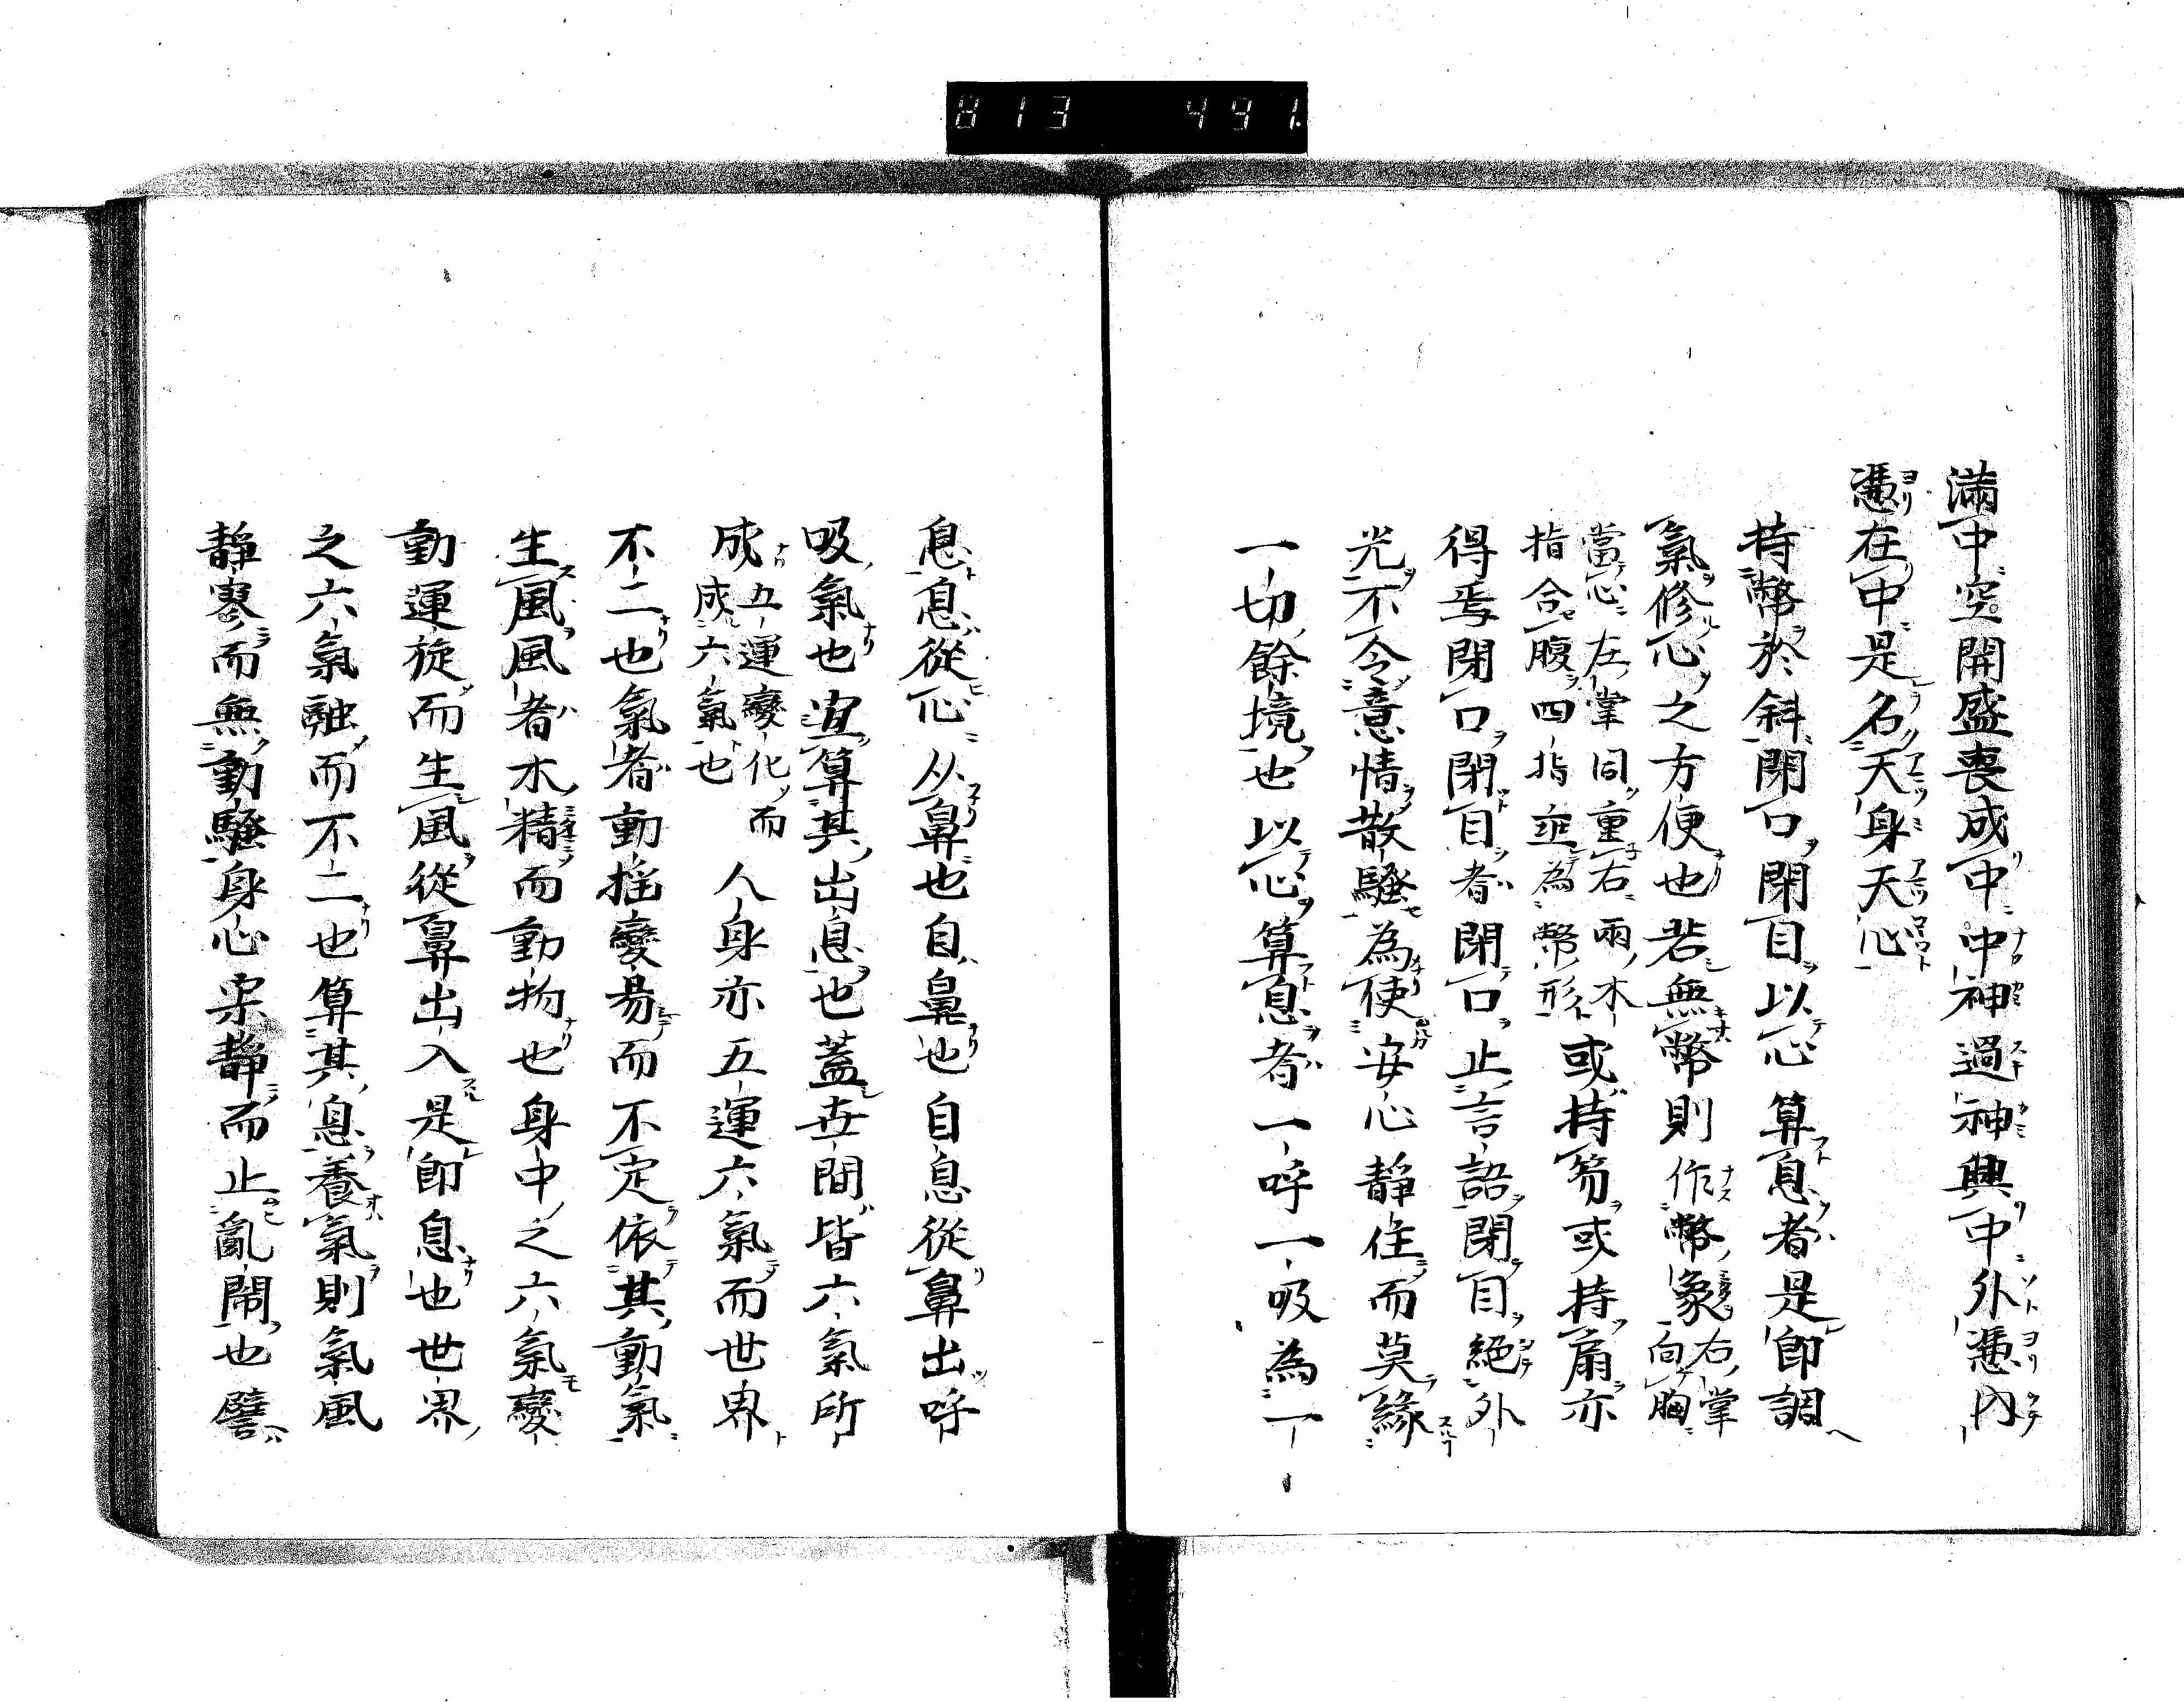 813 491
滿中空開盛喪成中中神過神興中外憑內
憑在中是名天身天心
持幣於斜閉口閉目以心算息者是即調
氣修心之方便也若無幣則作幣象右掌向胸
當心左掌同重右兩木指合腹四指竝為幣形或持笏或持扇亦
得焉閉口閉目者閉口止言語閉目絕外
光不令意情散騷為使安心靜住而莫緣
一切餘境也以心算息者一呼一吸為一
息息從心从鼻也自鼻也自息從鼻出呼
吸氣也宜算其出息也蓋世間皆六氣所
成五運變化而成六氣也人身亦五運六氣而世界
不二也氣者動搖變易而不定依其動氣
生風風者木精而動物也身中之六氣變
動運旋而生風從鼻出入是即息也世界
之六氣融而不二也算其息養氣則氣風
靜寥而無動騷身心寂靜而止亂鬧也譬